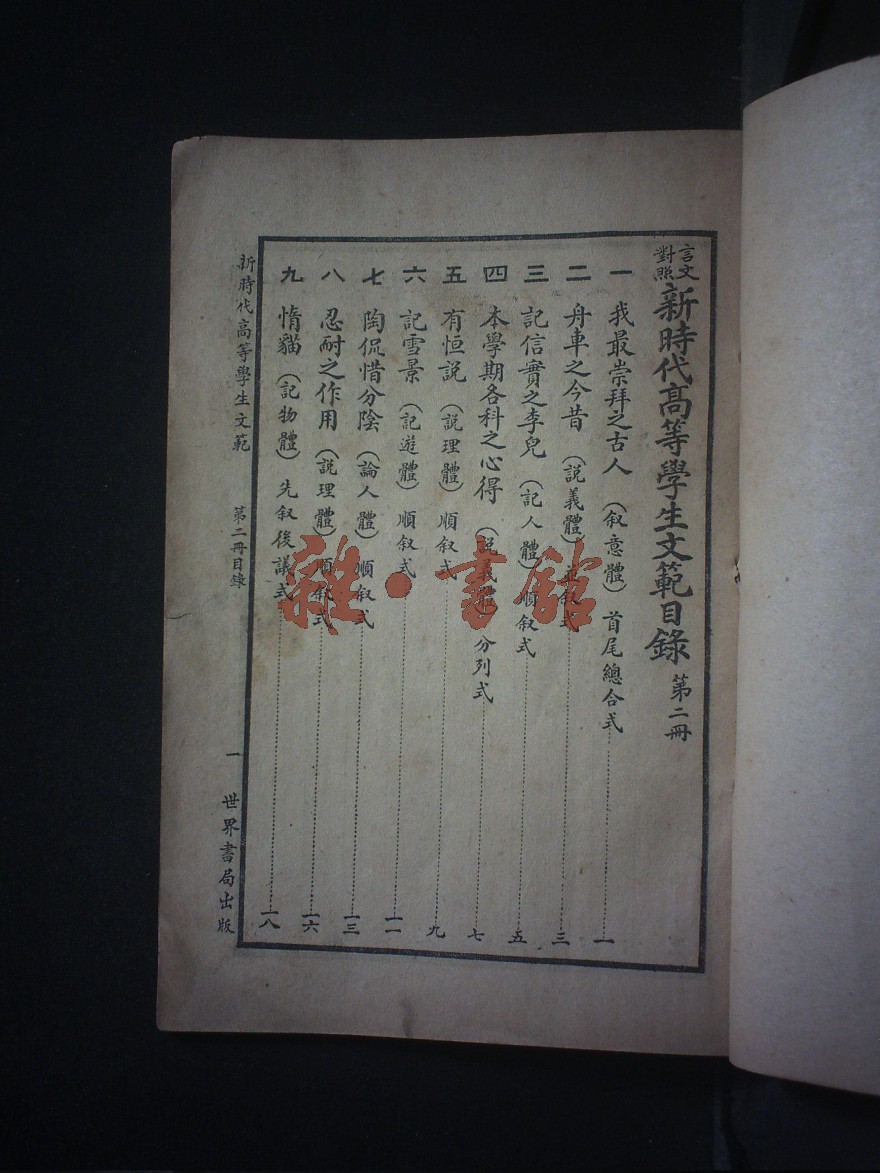 言文對照 新時代高等學生文範目錄 第二冊
一 我最崇拜之古人 (叙意體) 首尾總合式 一
二 舟車之今昔 (說義體) 叙式 三
三 記信實之李兒 (記人體) 順叙式 五
四 本學期各科之心得 (說義體) 分列式 七
五 有恒說 (說理體) 順叙式 九
六 記雪景 (記遊體) 順叙式 一一
七 陶侃惜分陰 (論人體) 順叙式 一三
八 忍耐之作用 (說理體) 順叙式 一六
九 惰貓 (記物體) 先叙後議式 一八
新時代高等學生文範 第二冊目錄 一 世界書局出版
雜·書館